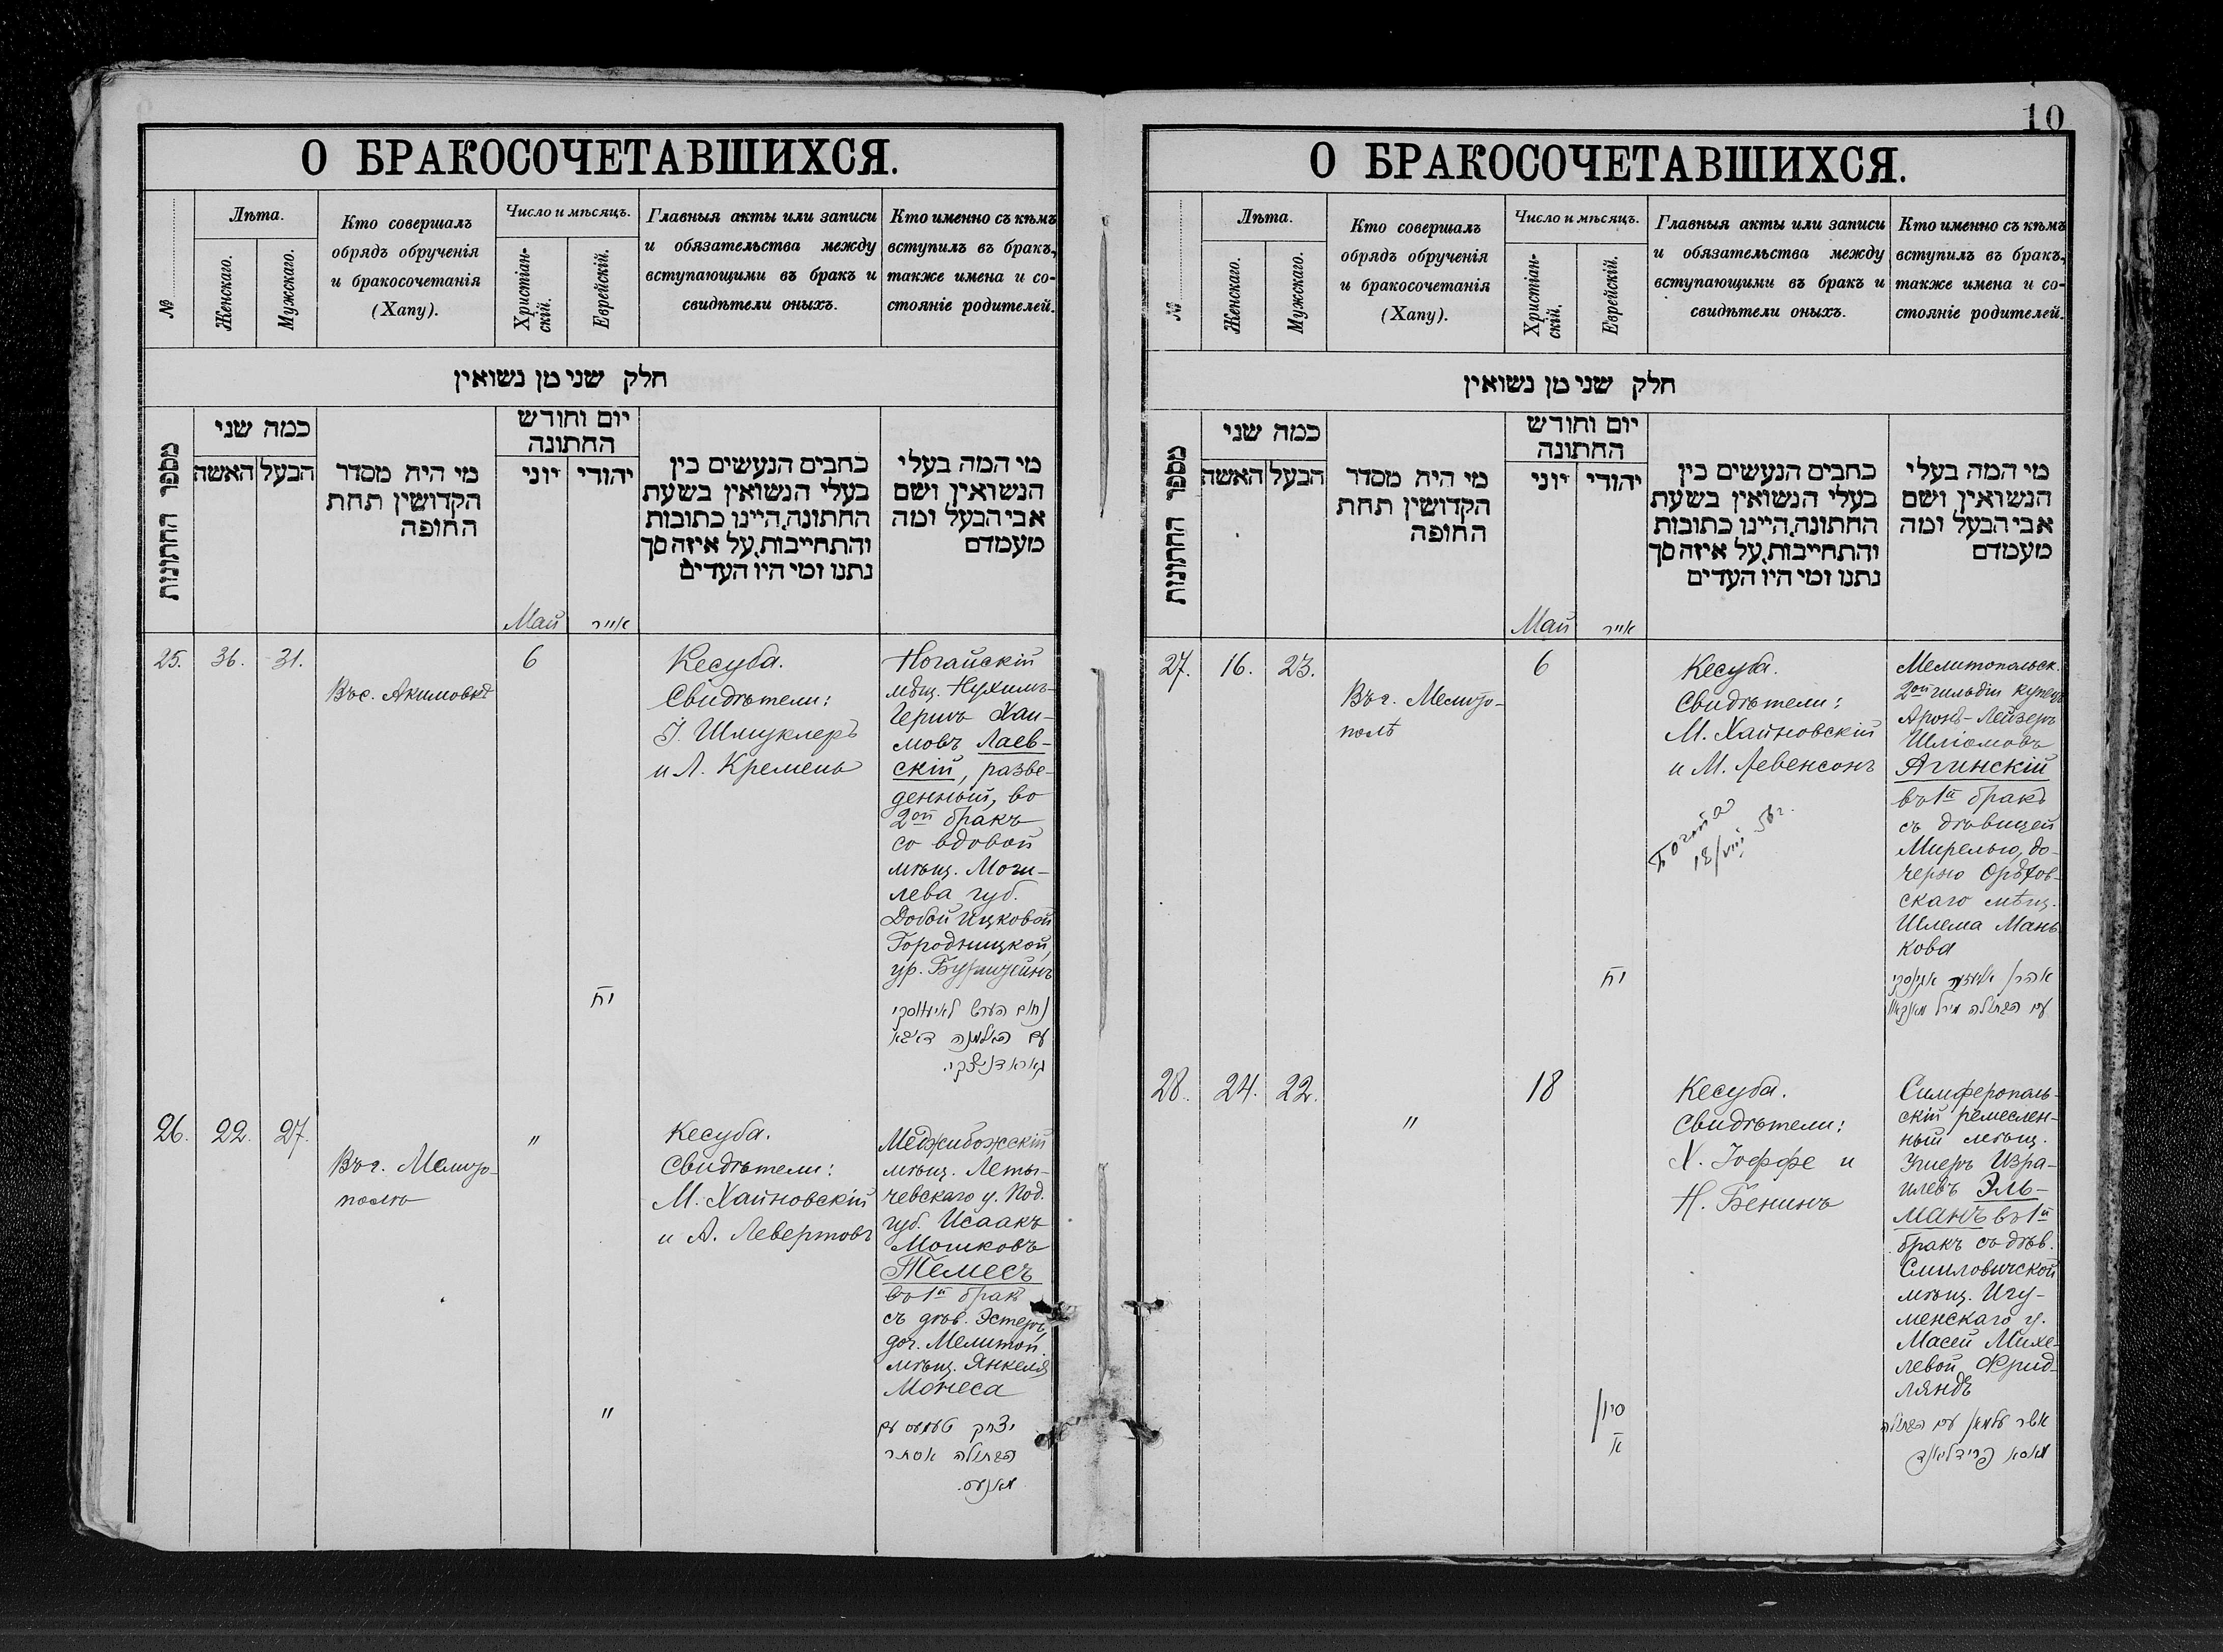 О БРАКОСОЧЕТАВШИХСЯ.
№
Лѣта.
Женскаго.
Мужскаго.
Кто совершалъ
обрядъ обрученія
и бракосочетанія
(Хапу).
Число и мѣсяцъ.
Христіан-
скій.
Еврейскій.
Главныя акты или записи
и обязательства между
вступающими въ бракъ и
свидѣтели оныхъ.
Кто именно съ кѣмъ
вступилъ въ бракъ,
также имена и со-
стояніе родителей.
חלק שני מן נשואין
מספר החתונות
כמה שני
האשה
הבעל
מי היה מסדר
הקדושין תחת
החופה
יום וחודש
החתונה
יוני
יהודי
כתבים הנעשים בין
בעלי הנשואין בשעת
החתונה, היינו כתובות
והתחייבות, על איזה סך
נתנו ומי היו העדים
מי המה בעלי
הנשואין ושם
אבי הבעל ומה
מעמדם
Май
אייר
25.
36.
31.
Въ с. Акимовкѣ
6
יח
Кесуба.
Свидѣтели:
І. Шмуклеръ
и Л. Кремень
Ногайскій
мѣщ. Нухимъ-
Гершъ Хаи-
мовъ Лаев-
скій, разве-
денный, во
2ой бракъ
со вдовой
мѣщ. Моги-
лева губ.
Добой Ицковой
Городницкой,
ур. Бурштейнъ
נחום הערש לאיעווסקי
עם האלמנה דאבא
גאראדניצקי.
26.
22.
27.
Въ г. Мелито-
полѣ
"
"
Кесуба.
Свидѣтели:
М. Хайновскій
и А. Левертовъ
Меджибожскій
мѣщ. Леты-
чевскаго у. Под.
губ. Исаакъ
Мошковъ
Темесъ
въ 1й бракъ
съ дѣв. Эстеръ,
доч. Мелитоп.
мѣщ. Янкеля
Монеса
יצחק טעמעס עם
הבתולה אסתר
מאנעס.
10
О БРАКОСОЧЕТАВШИХСЯ.
№
Лѣта.
Женскаго.
Мужскаго.
Кто совершалъ
обрядъ обрученія
и бракосочетанія
(Хапу).
Число и мѣсяцъ.
Христіан-
скій.
Еврейскій.
Главныя акты или записи
и обязательства между
вступающими въ бракъ и
свидѣтели оныхъ.
Кто именно съ кѣмъ
вступилъ въ бракъ,
также имена и со-
стояніе родителей.
חלק שני מן נשואין
מספר החתונות
כמה שני
האשה
הבעל
מי היה מסדר
הקדושין תחת
החופה
יום וחודש
החתונה
יוני
יהודי
כתבים הנעשים בין
בעלי הנשואין בשעת
החתונה, היינו כתובות
והתחייבות, על איזה סך
נתנו ומי היו העדים
מי המה בעלי
הנשואין ושם
אבי הבעל ומה
מעמדם
Май
אייר
27.
16.
23.
Въ г. Мелито-
полѣ
6
יח
Кесуба.
Свидѣтели:
М. Хайновскій
и М. Левенсонъ
18/VIII 56г.
Мелитопольск.
2ой гильдіи купецъ
Аронъ-Лейзеръ
Шліомовъ
Агинскій
въ 1й бракъ
съ дѣвицей
Мирелью, до-
черью Орѣхов-
скаго мѣщ.
Шлема Мань
кова
אהרן אליעזר אגינסקי
עם הבתולה מירל מאנקאוו
28.
24.
22.
"
18
סיון
א
Кесуба.
Свидѣтели:
Х. Іоффе и
Н. Бенинъ
Симферополь-
скій ремеслен-
ный мѣщ.
Ушеръ Изра-
илевъ Эль-
манъ въ 1й
бракъ съ дѣв.
Смиловичской
мѣщ. Игу-
менскаго у.
Масей Михе-
левой Фрид-
ляндъ
אשר עלמאן עם הבתולה
מאסא פרידליאנד